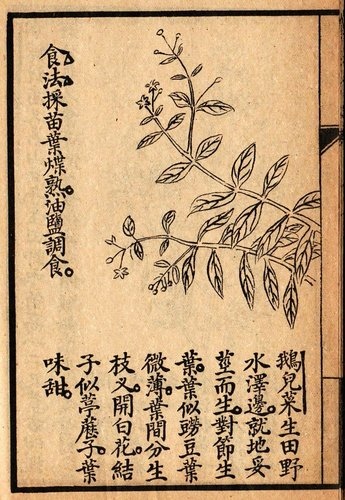 鵝兒菜生田野
水澤邊。就地妥
莖而生。對節生
葉。葉似豆葉
微薄。葉間分生
枝叉。開白花。結
子似葶藶子。葉
味甜。
食法。採苗葉煠熟。油鹽調食。